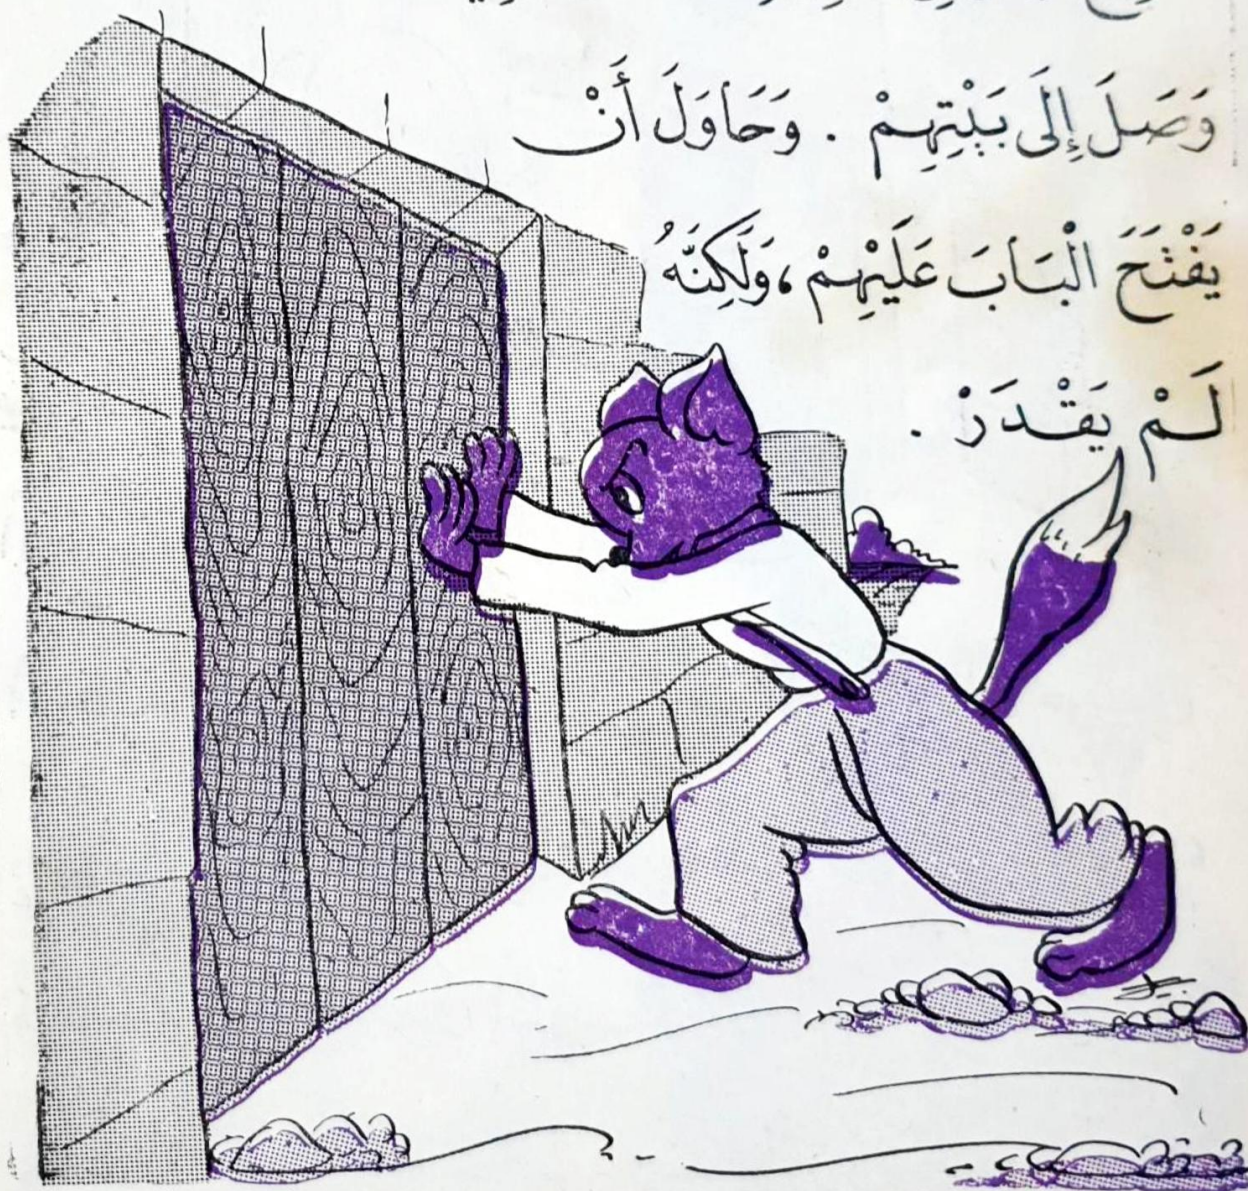 وَصَلَ إِلَى بَيْتِهِمْ . وَحَاوَلَ أَنْ
يَفْتَحَ الْبَابَ عَلَيْهِمْ ، وَلَكِنَّهُ
لَمْ يَقْدَرْ .